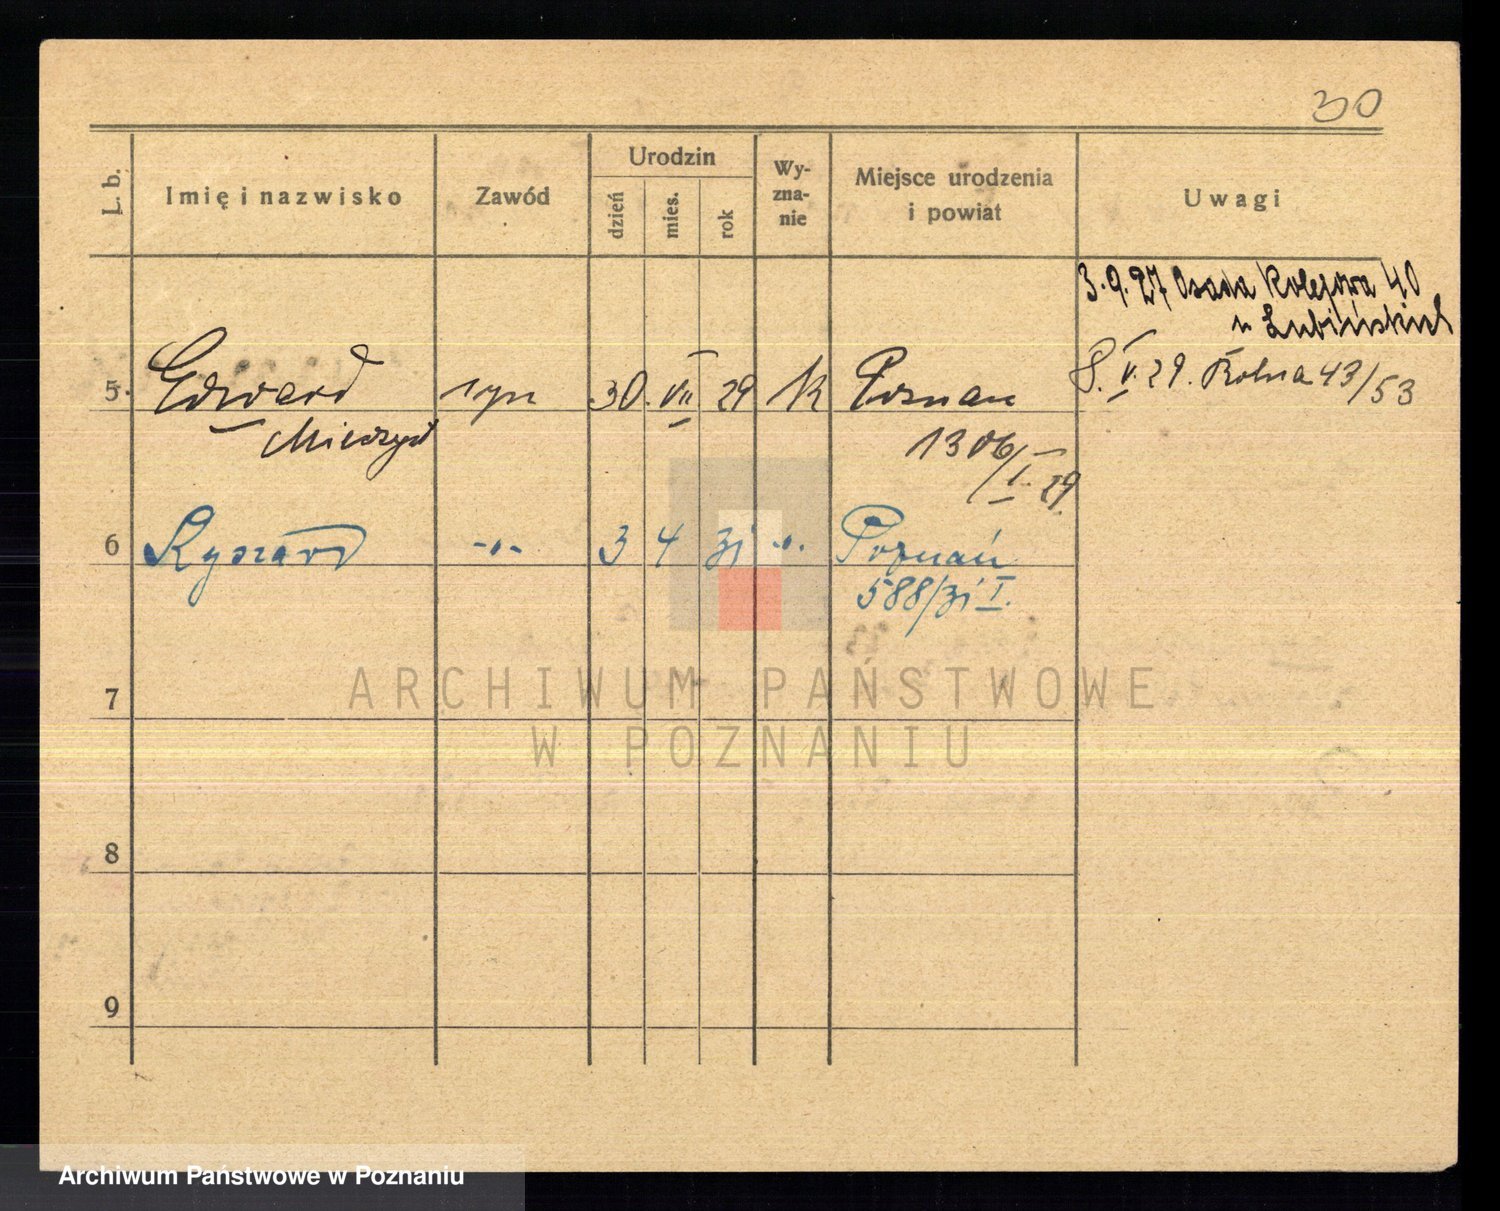 30
L. b.
Imię i nazwisko
Zawód
Urodzin
dzień
mies.
rok
Wy-
zna-
nie
Miejsce urodzenia
i powiat
Uwagi
3.9.27 Osada Kolejowa 40
u Lubińskich
8.V.29. Rolna 43/53
5. Edward syn 30. VII 29 k Poznań
Mieczysł
1306/I 29
6 Ryszard -"- 3 4 31 -"- Poznań
588/31 I.
7
8
9
ARCHIWUM PAŃSTWOWE
W POZNANIU
Archiwum Państwowe w Poznaniu